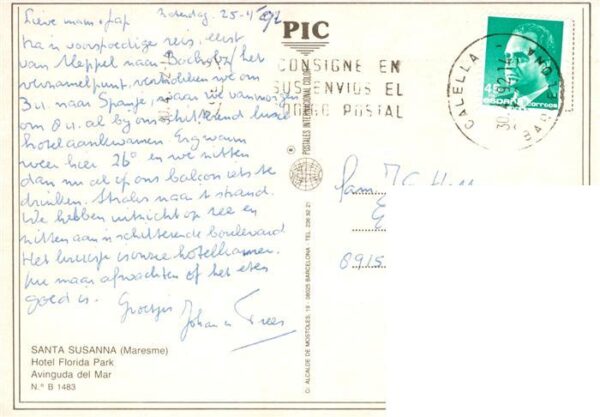 Zaterdag. 25-4-92
Lieve mam + Jap
Na 'n voorspoedige reis, eerst
van Meppel naar Bocholtz / het
verzamelpunt, vertrokken we om
3 u. naar Spanje, waar we vanmorgen
om 8 u. al bij ons schitterend luxe
hotel aankwamen. Erg warm
weer hier 26° en we zitten
dan nu al op ons balcon iets te
drinken. Straks naar 't strand.
We hebben uitzicht op zee en
zitten aan 'n schitterende boulevard
Het kruisje is onze hotelkamer.
Nu maar afwachten of het eten
goed is.
Groetjes
Johan en Trees
SANTA SUSANNA (Maresme)
Hotel Florida Park
Avinguda del Mar
N.º B 1483
PIC
CONSIGNE EN
SUS ENVIOS EL
CODIGO POSTAL
POSTALES INTERNACIONAL COLOR
C/. ALCALDE DE MOSTOLES, 19 08025 BARCELONA
45
ESPAÑA correos
CALELLA
BARCELONA
Fam.
6915